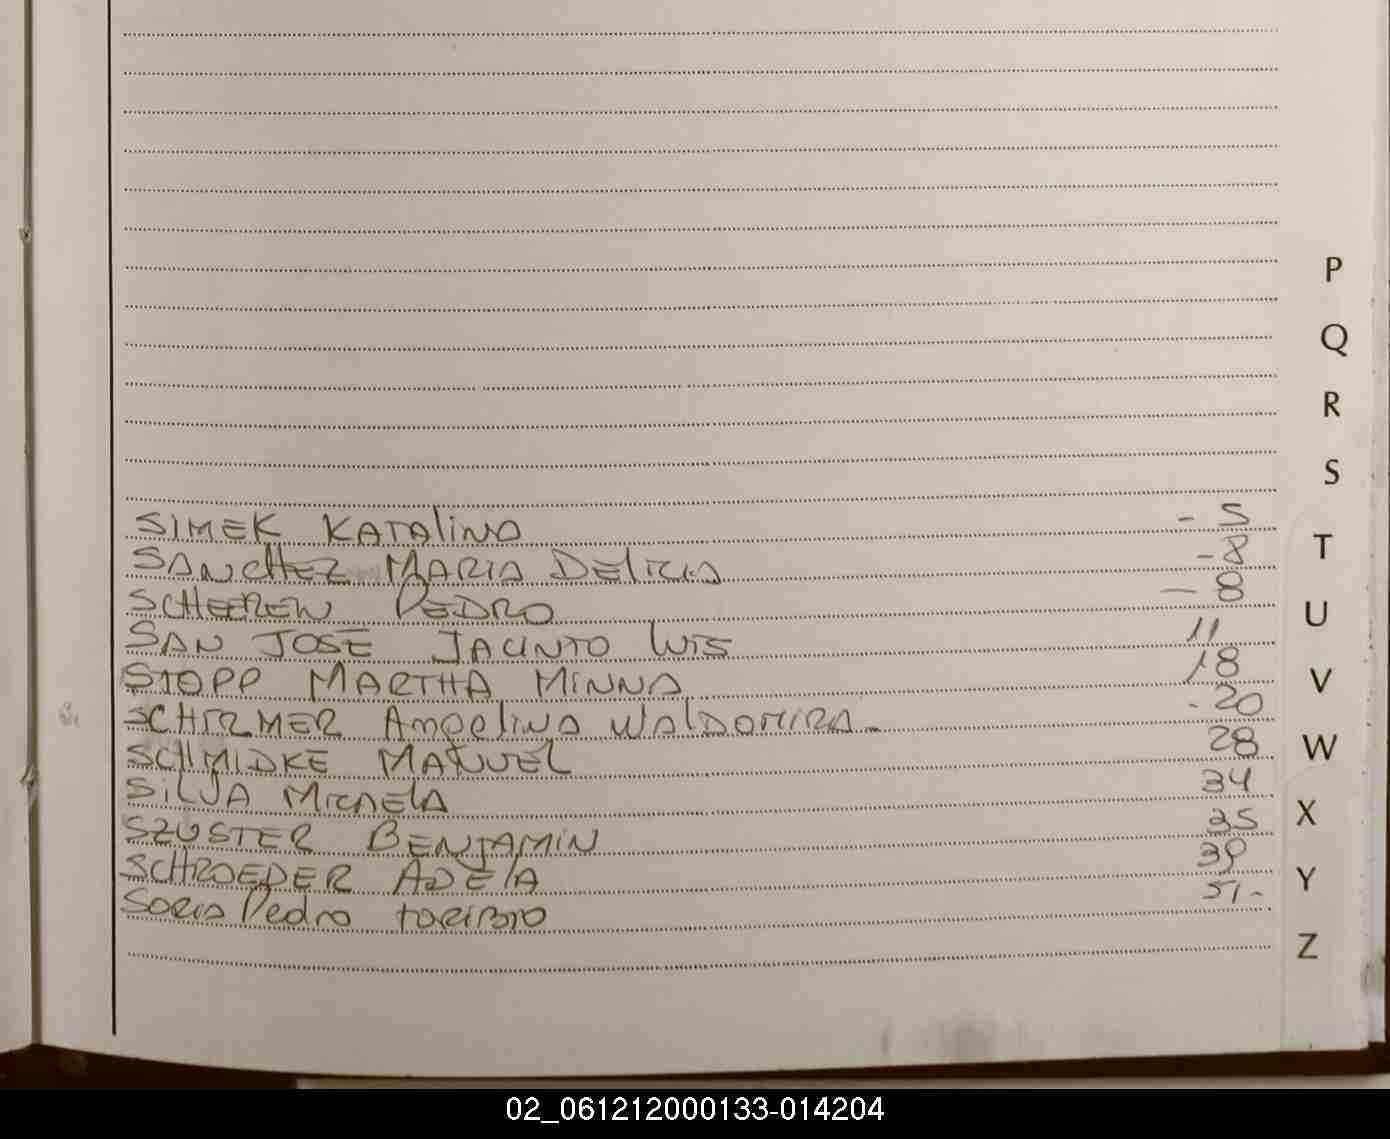 SIMEK KATALINA - 5
SANCHEZ MARIA DELICIA - 8
SCHEEREN PEDRO - 8
SAN JOSE JACINTO LUIS 11
STOPP MARTHA MINNA 18
SCHIRMER Angelina WALDOMIRA - 20
SCHMIDKE MANUEL 28
SILVA MICAELA 34
SZUSTER BENJAMIN 35
SCHROEDER ADELA 39
SORIA Pedro TORIBIO 51-
P
Q
R
S
T
U
V
W
X
Y
Z
02_061212000133-014204